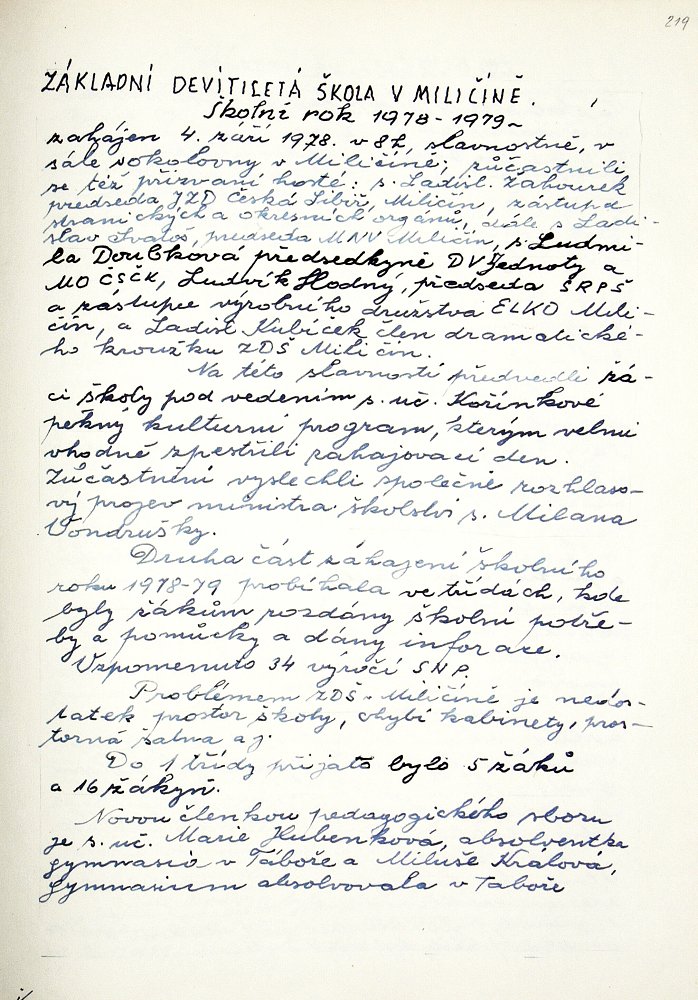 219
ZÁKLADNÍ DEVÍTILETÁ ŠKOLA V MILIČÍNĚ.
Školní rok 1978-1979~
zahájen 4. září 1978. v 8h, slavnostně, v
sále sokolovny v Miličíně; zúčastnili
se též přizvaní hosté: s. Ladisl. Zahourek
předseda JZD Česká Sibiř, Miličín, zástupce
stranických a okresních orgánů, dále s Ladi-
slav Ivatoš, předseda MNV Miličín, s. Ludmi-
la Doubková předsedkyně DV Jednoty a
MO ČSČK, Ludvík Hodný, předseda SRPŠ
a zástupce výrobního družstva ELKO Mili-
čín, a Ladisl Kubíček člen dramatické-
ho kroužku ZDŠ Miličín.
Na této slavnosti předvedli žá-
ci školy pod vedením s. uč. Kořínkové
pěkný kulturní program, kterým velmi
vhodně zpestřili zahajovací den.
Zúčastnění vyslechli společně rozhlaso-
vý projev ministra školství s. Milana
Vondrušky.
Druhá část záhajení školního
roku 1978-79 probíhala ve třídách, kde
byly žákům rozdány školní potře-
by a pomůcky a dány inforace.
Vzpomenuto 34 výročí SNP.
Problémem ZDŠ-Miličíně je nedos-
tatek prostor školy, chybí kabinety, pros-
torná šatna aj.
Do 1 třídy přijato bylo 5 žáků
a 16 žákyň.
Novou členkou pedagogického sboru
je s. uč. Marie Hubenková, absolventka
gymnasia v Táboře a Miluše Kralová,
gymnasium absolvovala v Taboře